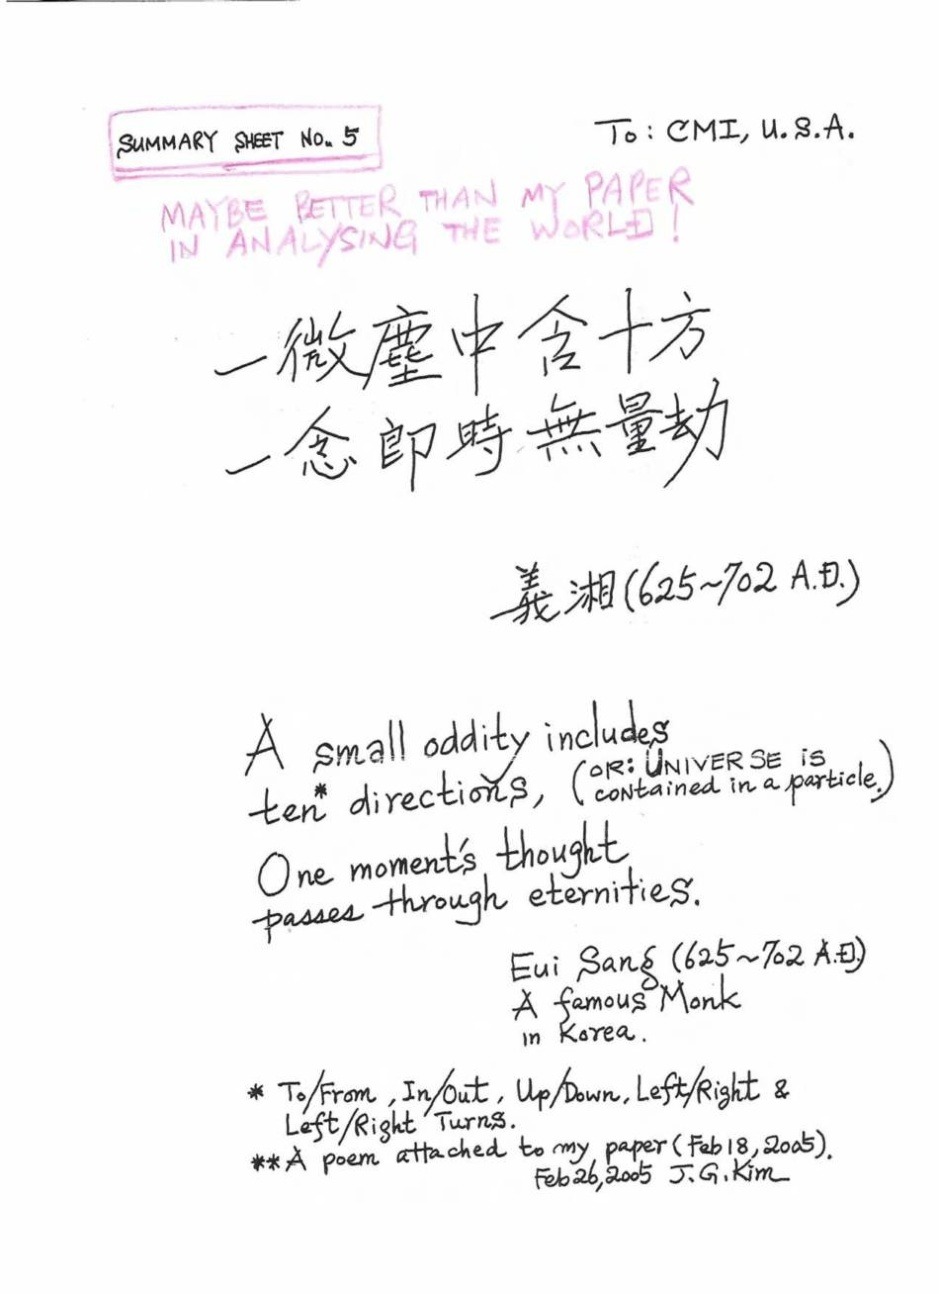 SUMMARY SHEET NO. 5
To: CMI, U.S.A.
MAYBE BETTER THAN MY PAPER
IN ANALYSING THE WORLD!
一微塵中含十方
一念即時無量劫
義湘(625~702 A.D.)
A small oddity includes
ten* directions, (OR: UNIVERSE is
contained in a particle.)
One moment's thought
passes through eternities.
Eui Sang (625~702 A.D.)
A famous Monk
in Korea.
* To/From, In/Out, Up/Down, Left/Right &
Left/Right Turns.
** A poem attached to my paper (Feb 18, 2005).
Feb 26, 2005 J.G. Kim